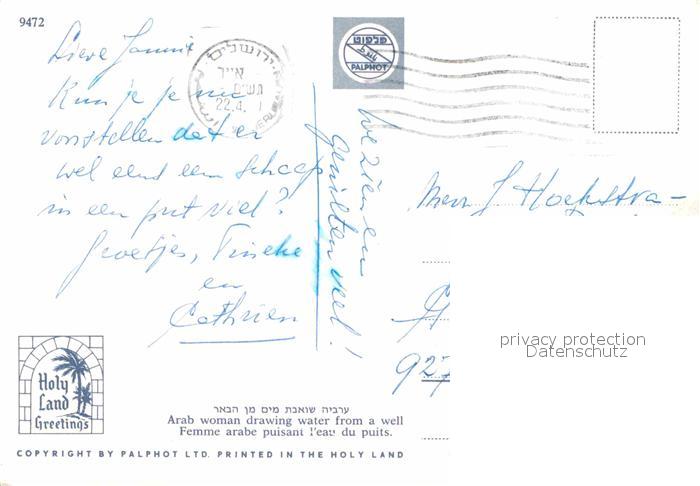 9472
Lieve Jannie
Kun je je nu
voorstellen dat er
wel eens een schaap
in een put viel?
Groetjes, Tineke
en
Cathrien
We zien en
genieten veel!
ירושלים
אייר
22.4.
פלפוט
PALPHOT
Mevr. J. Hoekstra-
927
privacy protection
Datenschutz
Holy
Land
Greetings
ערביה שואבת מים מן הבאר
Arab woman drawing water from a well
Femme arabe puisant l'eau du puits.
COPYRIGHT BY PALPHOT LTD. PRINTED IN THE HOLY LAND